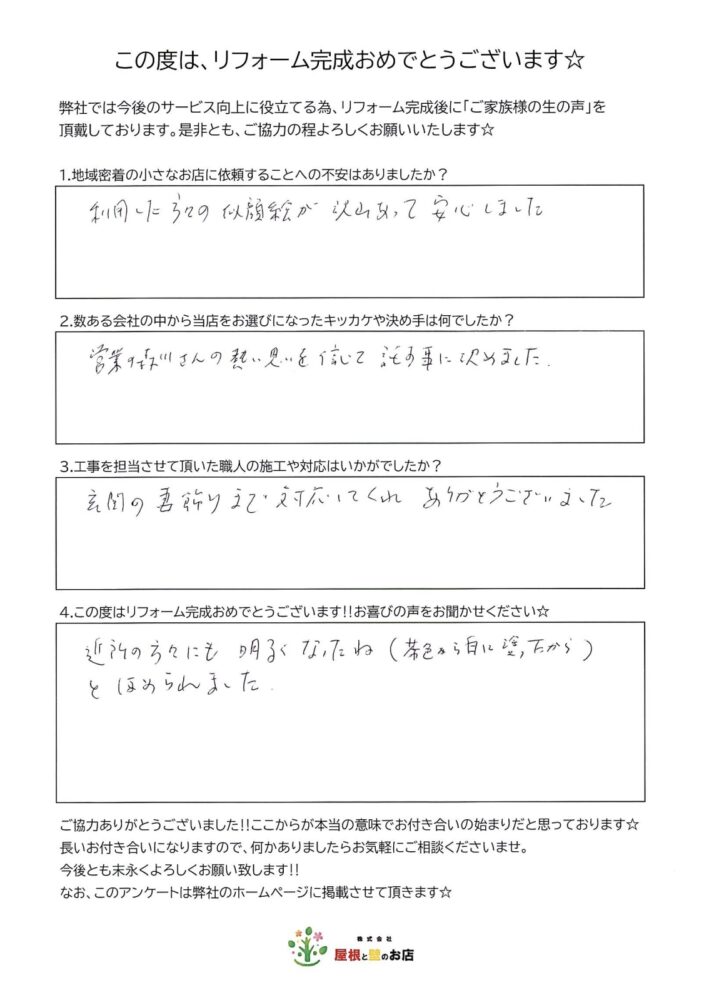 この度は、リフォーム完成おめでとうございます☆
弊社では今後のサービス向上に役立てる為、リフォーム完成後に「ご家族様の生の声」を
頂戴しております。是非とも、ご協力の程よろしくお願いいたします☆
1.地域密着の小さなお店に依頼することへの不安はありましたか？
利用した方々の似顔絵が沢山あって安心しました
2.数ある会社の中から当店をお選びになったキッカケや決め手は何でしたか？
営業の森川さんの熱い思いを信じて託す事に決めました.
3.工事を担当させて頂いた職人の施工や対応はいかがでしたか？
玄関の 飾りまで対応してくれ ありがとうございました
4.この度はリフォーム完成おめでとうございます!!お喜びの声をお聞かせください☆
近所の方々にも 明るくなったね(茶色から白に塗ったから)
とほめられました.
ご協力ありがとうございました!!ここからが本当の意味でお付き合いの始まりだと思っております☆
長いお付き合いになりますので、何かありましたらお気軽にご相談くださいませ。
今後とも末永くよろしくお願い致します!!
なお、このアンケートは弊社のホームページに掲載させて頂きます☆
株式会社
屋根と壁のお店